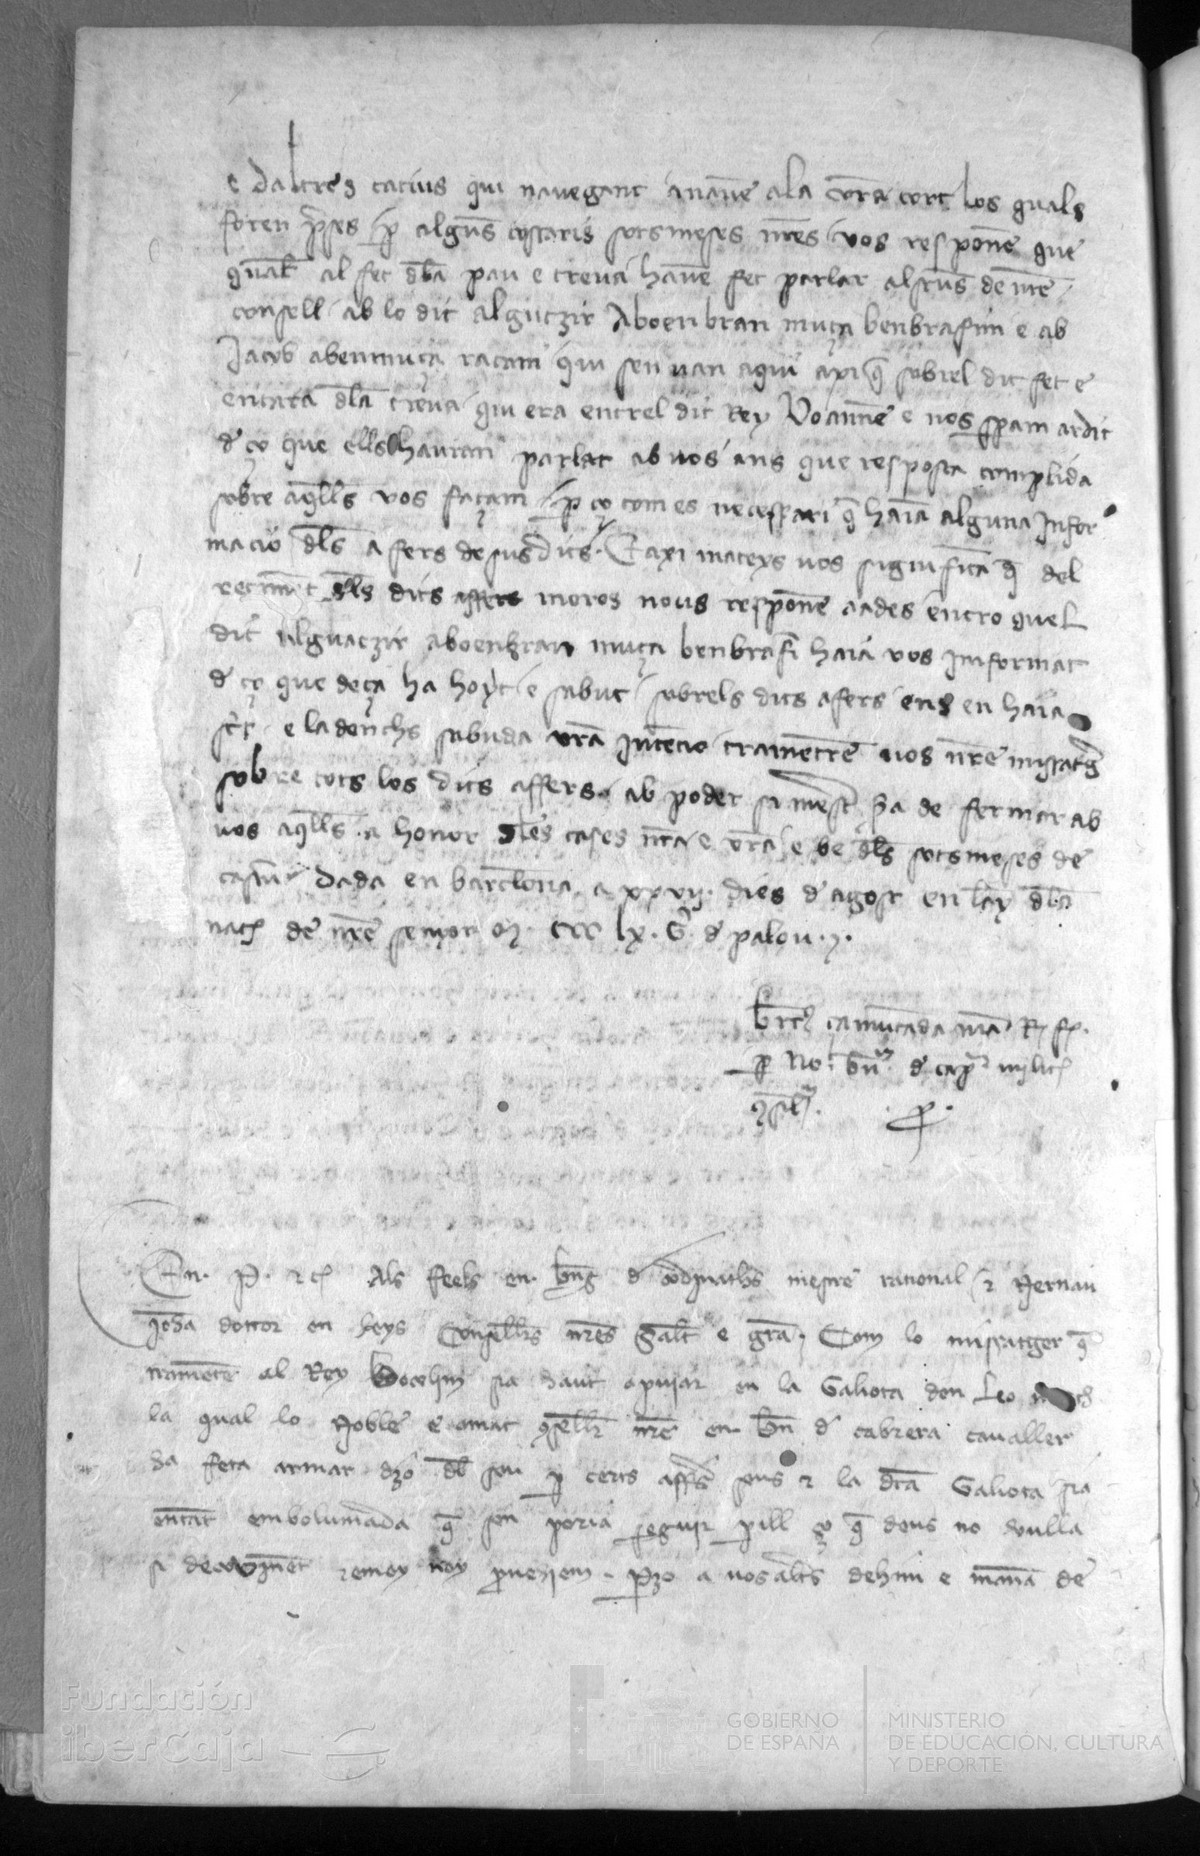 e daltres catius qui navegant anaven ala vra cort los quals
foren preses p alguns cossaris sotsmeses nres vos responem que
quant al fet dla pau e treua havem fet parlar alscuns de nre
consell ab lo dit algutzir Aboenbran muça benbrafim e ab
Jacob abenmuça racam qui sen van aqui axi q sobrel dit fet e
encara dla treua qui era entrel dit Rey Boannen e nos speram ardit
d ço que ells hauran parlat ab vos ans que resposta complida
sobre aqlls vos façam p ço com es necessari q haiam alguna Infor
macio dls afers desusdits. E axi mateys vos significam q del
dls dits moros nous responem aades entro quel
dit alguatzir aboenbran muça benbrafi haia vos Informat
d ço que deça ha hoyt e sabut sobrels dits afers ens en haia
e ladonchs sabuda vra Intencio trametrem vos nre missatg
sobre tots los dits affers ab poder si mest sa de fermar ab
vos aqlls a honor dles cases nra e vra e be dls sotsmeses de
cascu Dada en barclona a xxvij dies d agost en lay dla
nat de nre senyor M CCC lx. G. d palou.
brt çamuntada man R f.
p No. bn. d capr milit
consil. p.
En. P. etc Als feels en bng d codinachs mestre racional e Bernau
Johan doctor en leys Consellrs nres Salut e gra. Com lo missatger q
trametem al Rey Bocolim sia haut a puiar en la Galiota den Leo march
la qual lo Noble e amat cosellr nre en bn d cabrera cavaller
ha feta armar dço dl seu p certs affs seus e la dta Galiota sia
entant embolumada q sen poria seguir pill ço q deus no vulla
si decontinent remey noy proveiem. Pço a vosaltrs dehim e manam de
Fundación
iberCaja
GOBIERNO
DE ESPAÑA
MINISTERIO
DE EDUCACIÓN, CULTURA
Y DEPORTE